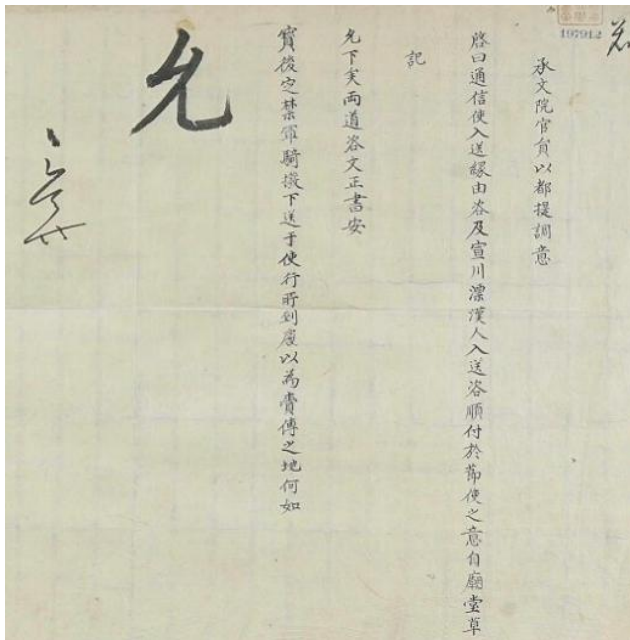 承文院官員以都提調意
啓曰通信使入送緣由咨及宣川漂漢人入送咨順付於節使之意自廟堂草
記
允下矣両道咨文正書安
寶後定禁軍騎撥下送于使行所到處以為賫傳之地何如
允